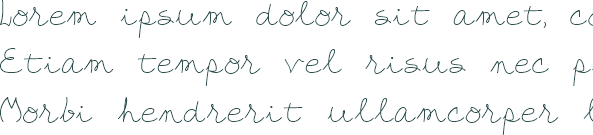 Lorem ipsum dolor sit amet, co
Etiam tempor vel risus nec p
Morbi hendrerit ullamcorper l